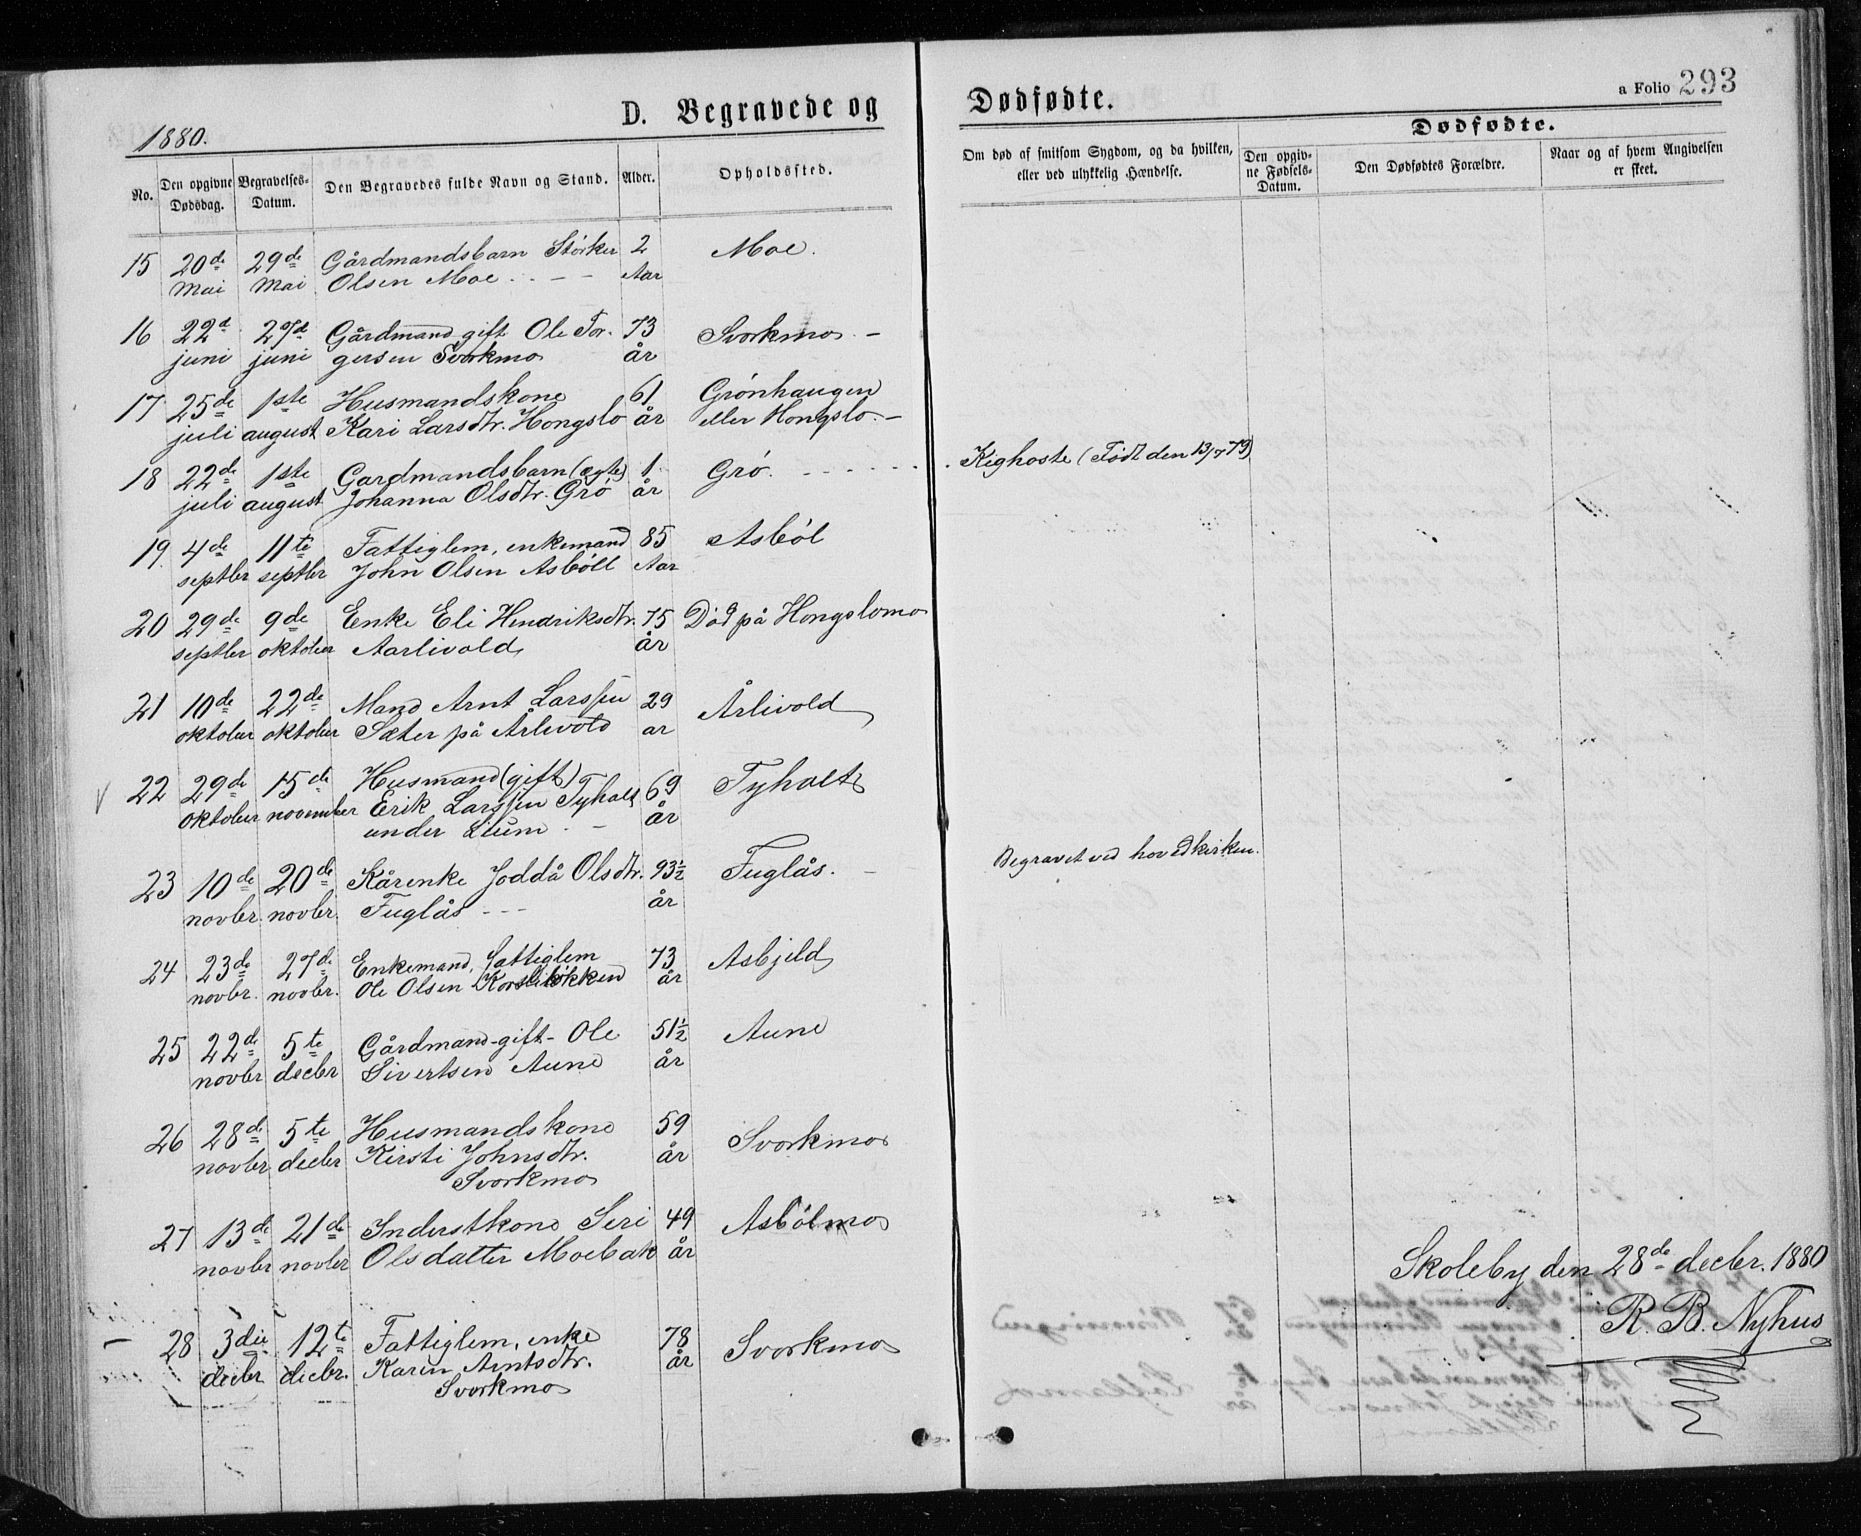 D. Begravede og Dødfødte.
a Folio 293
1880.
Dødfødte.
No.
Den opgivne Dødsdag.
Begravelses-Datum.
Den Begravedes fulde Navn og Stand.
Alder.
Opholdssted.
Om død af smitsom Sygdom, og da hvilken, eller ved ulykkelig Hændelse.
Den opgivne Fødsels-Datum.
Den Dødfødtes Forældre.
Naar og af hvem Angivelsen er skeet.
15 20de 29de Gårdmandsbarn Störker 2 Moe.
Mai Mai Olsen Moe . - - - Aar
16 22d 27d Gårdmand, gift Ole Tor- 73 Svorkmo. -
juni juni gersen Svorkmo år
17 25de 1ste Husmandskone 61 Grönhaugen
juli august Kari Larsdtr. Hongslo år eller Hongslo. -
18 22de 1ste Gardmandsbarn (ægte) 1. Grö. - - - - - - - Kighoste (Født den 13/7 79)
juli august Johanna Olsdtr. Grö år
19. 4de 11te Fattiglem, enkemand 85 Asböl
septbr septbr John Olsen Asböll Aar
20 29de 9de Enke Eli Hendriksdtr. 75 Död på Hongslomo
septbr oktober Aarlivold år
21 10de 22de Mand Arnt Larssen 29 Årlivold
oktober oktober Sæter på Årlivold ar
22 29de 15de Husmand (gift) 69 Tyholt
oktober november Erik Larssen Tyholt år
under Lium . -
23 10de 20de Kårenke Joddå Olsdtr. 93½ Fuglås. - Begravet ved hovedkirken.
novbr. novbr. Fuglås - - - år
24 23de 27de Enkemand, fattiglem 73 Asbjeld
novbr. novbr. Ole Olsen år
25 22de 5te Gårdmand-gift- Ole 51½ Aune
novbr decbr Sivertsen Aune år
26 28de 5te Husmandskone 59 Svorkmo
novbr decbr Kirsti Johnsdtr. år
Svorkmo
27 13de 21de Inderstkone Seri 49 Asbölmo
novbr novbr Olsdatter Moebak år
28 3die 12te Fattiglem, enke 78 Svorkmo
decbr decbr. Karen Arntsdtr. år
Svorkmo
Skoleby den 28de decbr. 1880
R. B. Nyhus